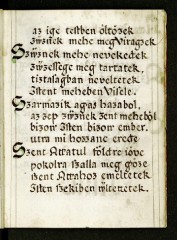 az ige testben öltözek
Szűznek mehe megviragzek
Szűznek mehe nevekedek
Szűzessege meg tartatek
tiztalagban neveltetek
Isten meheben visele.
Szarmazik agyas hazabol,
az zep szűznek zent meheből
bizon Isten bizon ember.
utra mi hozzanc erede
Szent Atyatul földre iöve
pokolra szalla meg göze
Szent Atyahoz emeltetek
Isten szekiben ültetetek.